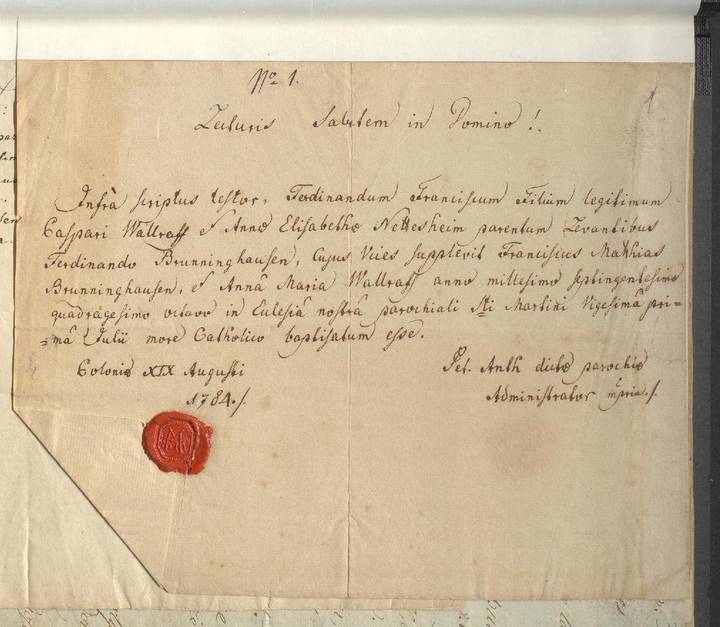 No 1.
Lecturis Salutem in Domino!
Infrà scriptus testor, Ferdinandum Franciscum Filium legitimum
Caspari Wallraff & Annæ Elisabethæ Nettesheim parentum Levantibus
Ferdinando Brunninghausen, Cujus Vices supplevit Franciscus Mathias
Brunninghausen, & Annâ Maria Wallraff anno millesimo septingentesimo
quadragesimo octavo in Ecclesiâ nostrâ parochiali Sti Martini Vigesimâ pri=
=mâ Julii more Catholico baptisatum esse.
Coloniæ XIX Augusti
1784./.
Pet. Anth dictæ parochiæ
Administrator mpria./.
1